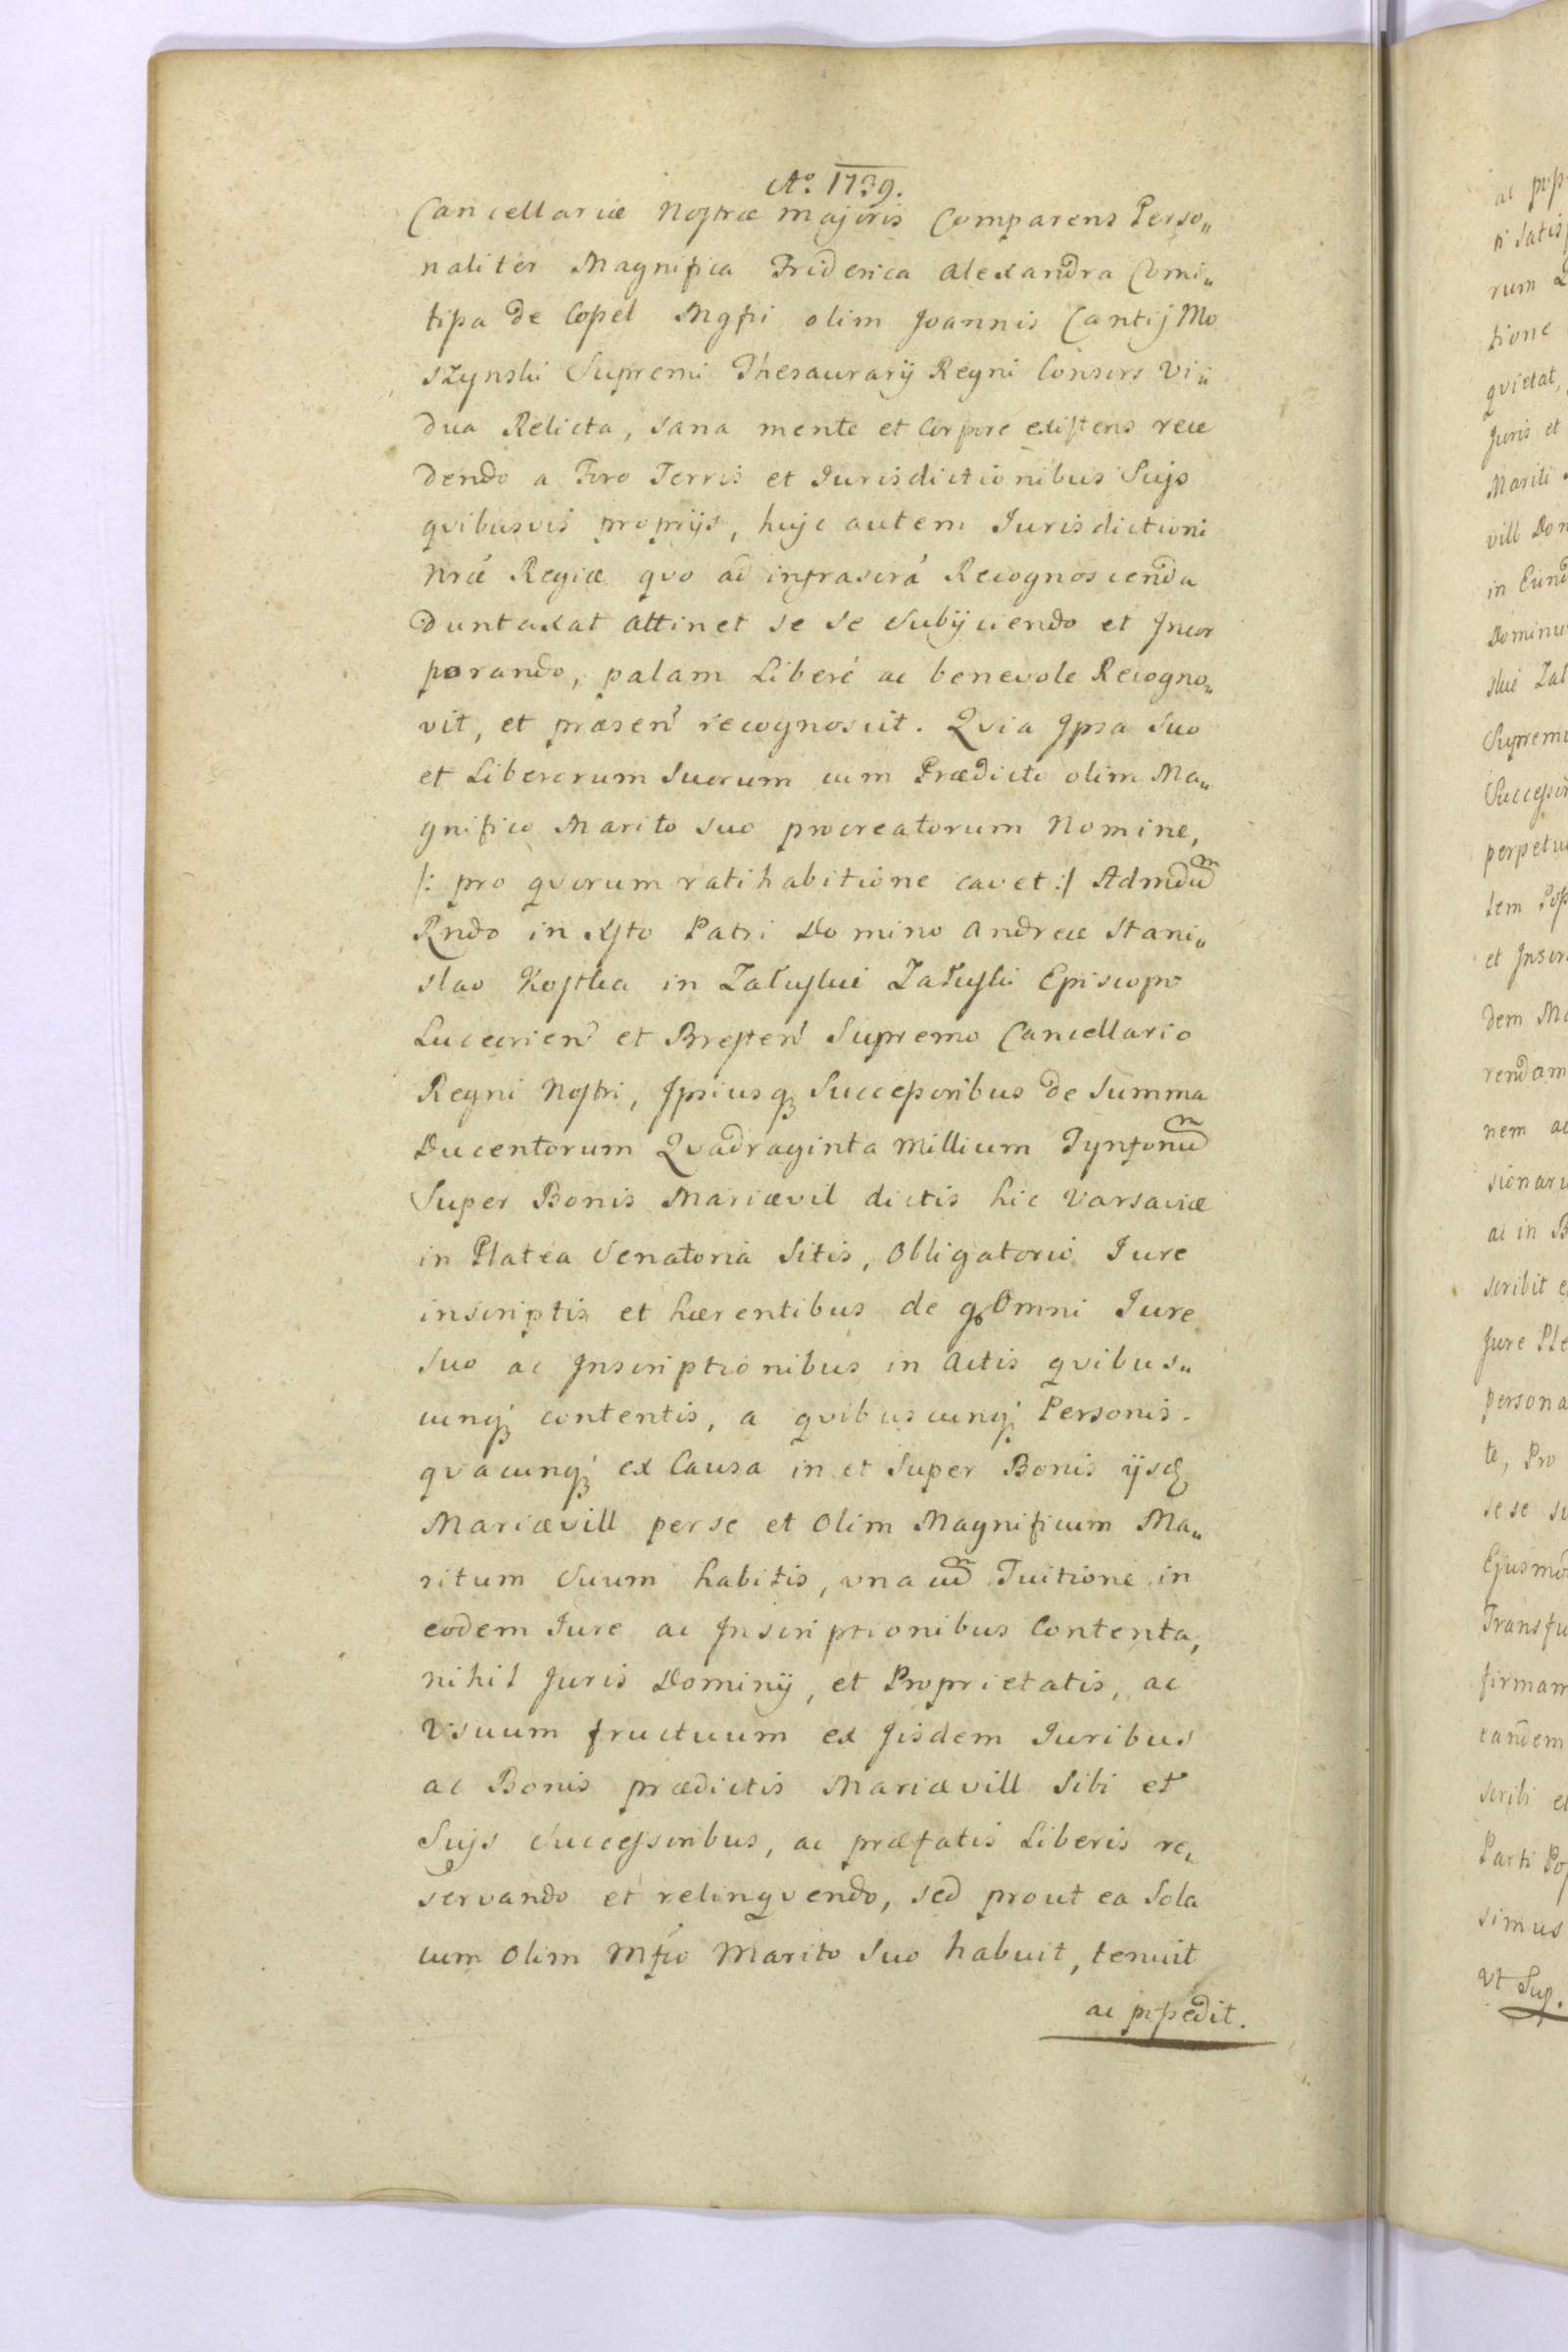 Ao. 1739.
Cancellariæ Nostræ majoris Comparens Perso„
naliter Magnifica Friderica Alexandra Comi„
tissa de Cosel Mgfci olim Joannis Cantij Mo
szynski Supremi Thesaurarij Regni Consors Vi„
dua Relicta, sana mente et Corpore existens rece
dendo a Foro Terris et Jurisdictionibus Suijs
qvibusvis proprijs, huic autem Jurisdictioni
Nræ Regiæ qvo ad infrascrá Recognoscenda
duntaxat attinet se se Subijciendo et Incor
porando, palam Liberé ac benevole Recogno„
vit, et præsen recognoscit. Qvia Ipsa Suo
et Liberorum Suorum cum Prædicto olim Ma„
gnifico Marito Suo procreatorum Nomine,
/: pro qvorum ratihabitione cavet :/ Admdum
Rndo in Xsto Patri Domino Andreæ Stani„
slao Kostka in Załuskie Załuski Episcopo
Luceorien et Bresten Supremo Cancellario
Regni Nostri, Ipsiusq; Successoribus de Summa
Ducentorum Qvadraginta Millium Tynfonum
Super Bonis Mariævil dictis hic Varsaviæ
in Platea Senatoria Sitis, Obligatorio Jure
inscriptis et hærentibus de qo Omni Jure
Suo ac Inscriptionibus in Actis qvibus„
cunq; contentis, a qvibuscunq; Personis.
qvacunq; ex Causa in et Super Bonis ijsd
Mariævill per se et Olim Magnificum Ma„
ritum Suum habitis, una cum Tuitione in
eodem Jure ac Inscriptionibus Contenta,
nihil Juris Dominij, et Proprietatis, ac
Usuum fructuum ex Iisdem Juribus
ac Bonis prædictis Mariævill Sibi et
Suijs Successoribus, ac præfatis Liberis re„
servando et relinqvendo, sed prout ea Sola
cum Olim Mfco Marito Suo habuit, tenuit
ac possedit.
ac poss
rum
tione
qvietat,
Juris et
Mariti
vill Do
in Eund
Dominu
Supremi
Successor
perpetu
tem Poss
et Inscr
dem Ma
rendam
nem ac
sionaru
ac in B
scribit e
Jure Ple
persona
te, Pro
se se su
Ejusmo
Transfu
firmam
eandem
scribi et
Parti Pos
simus
Ut Sup.